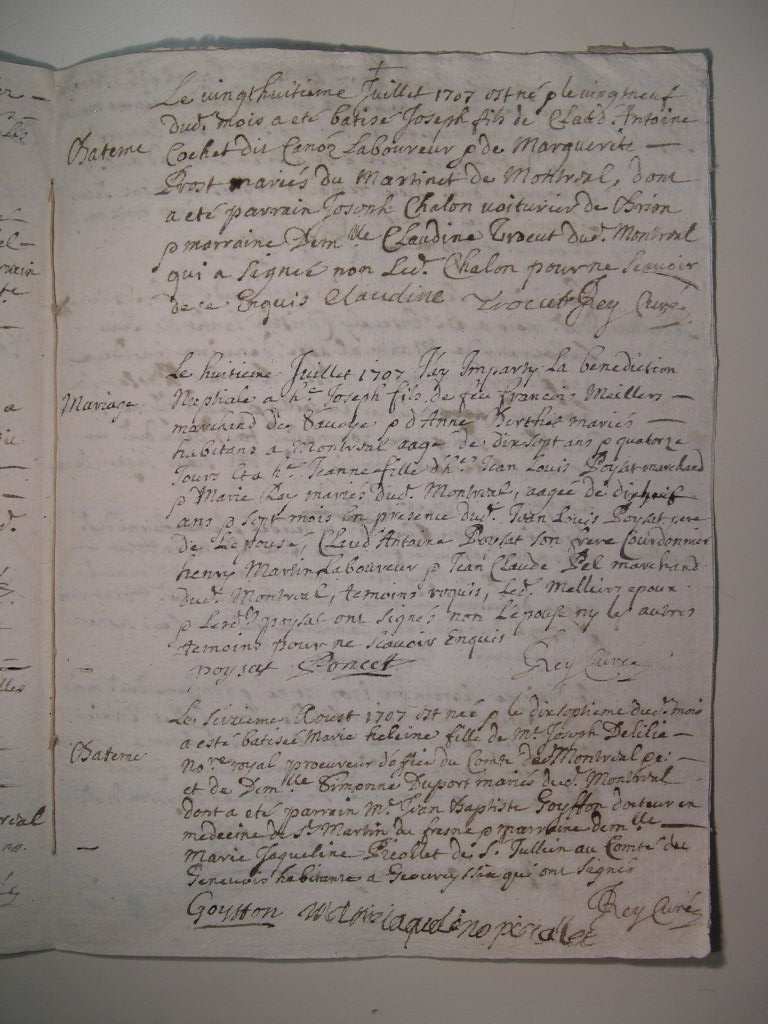 Le vingthuitieme Juillet 1707 est né p le vingtneuf
dud. mois a eté batisé Joseph fils de Claud. Antoine
Bateme
Cochet dit Laboureur p de Marguerite
Prost mariés du Martinet de Montreal, dont
a eté parrain Joseph Chalon voiturier de Brion
p marraine Dem.lle Claudine Trocut dud. Montreal
qui a signé non led. Chalon pour ne scavoir
de ce Enquis Claudine Trocut Rey Curé
Le huitieme Juillet 1707 J'ay Imparty La benediction
Mariage
Nuptiale a h. Joseph fils de feu francois
marchand de p d'Anne Berthet mariés
habitans a Montreal aagé de dixsept ans p quatorze
Jours Et a h. Jeanne fille d'h. Jean Louis Poysat marchand
p Marie mariés dud. Montreal, aagée de
ans p sept mois En presence dud. Jean Louis Poysat pere
de L'epouse, Claud. Antoine Poysat son frere Courdonnier
henry Martin Laboureur p Jean Claude marchand
dud. Montreal, temoins requis, Led. epoux
p Lesd. poysat ont signés non L'epouse ny les autres
temoins pour ne scavoir Enquis
poysat Poncet Rey Curé
Le seizieme Aoust 1707 est née p le dixseptieme dud. mois
a esté batisée Marie heleine fille de M. Joseph Delilia
Bateme
No.re royal procureur d'office du Comté de Montreal
et de Dem.lle Simonne Duport mariés dud. Montreal
dont a eté parrain M. Jean Baptiste Goyffon docteur en
medecine de S. Martin du fresne p marraine dem.lle
Marie Jaqueline Picollet de S. Jullien au Comté de
Genevois habitante a Geovreyssia qui ont signés
Goyffon Rey Curé